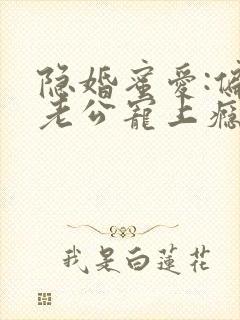 隐婚蜜爱:偏
老公宠上瘾
我是白莲花